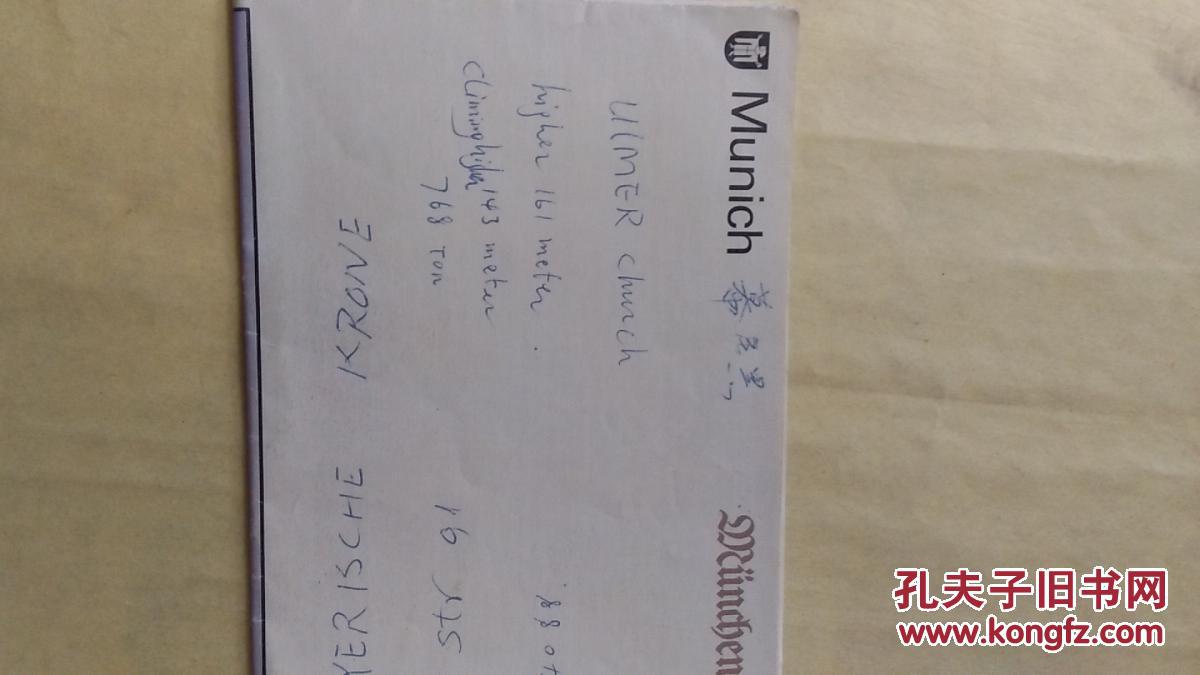 Munich 慕尼黑
München
UlMER church
higher 161 meter.
climinghigher 143 meter
768 Ton
str 16
YERISCHE KRONE
孔夫子旧书网
www.kongfz.com